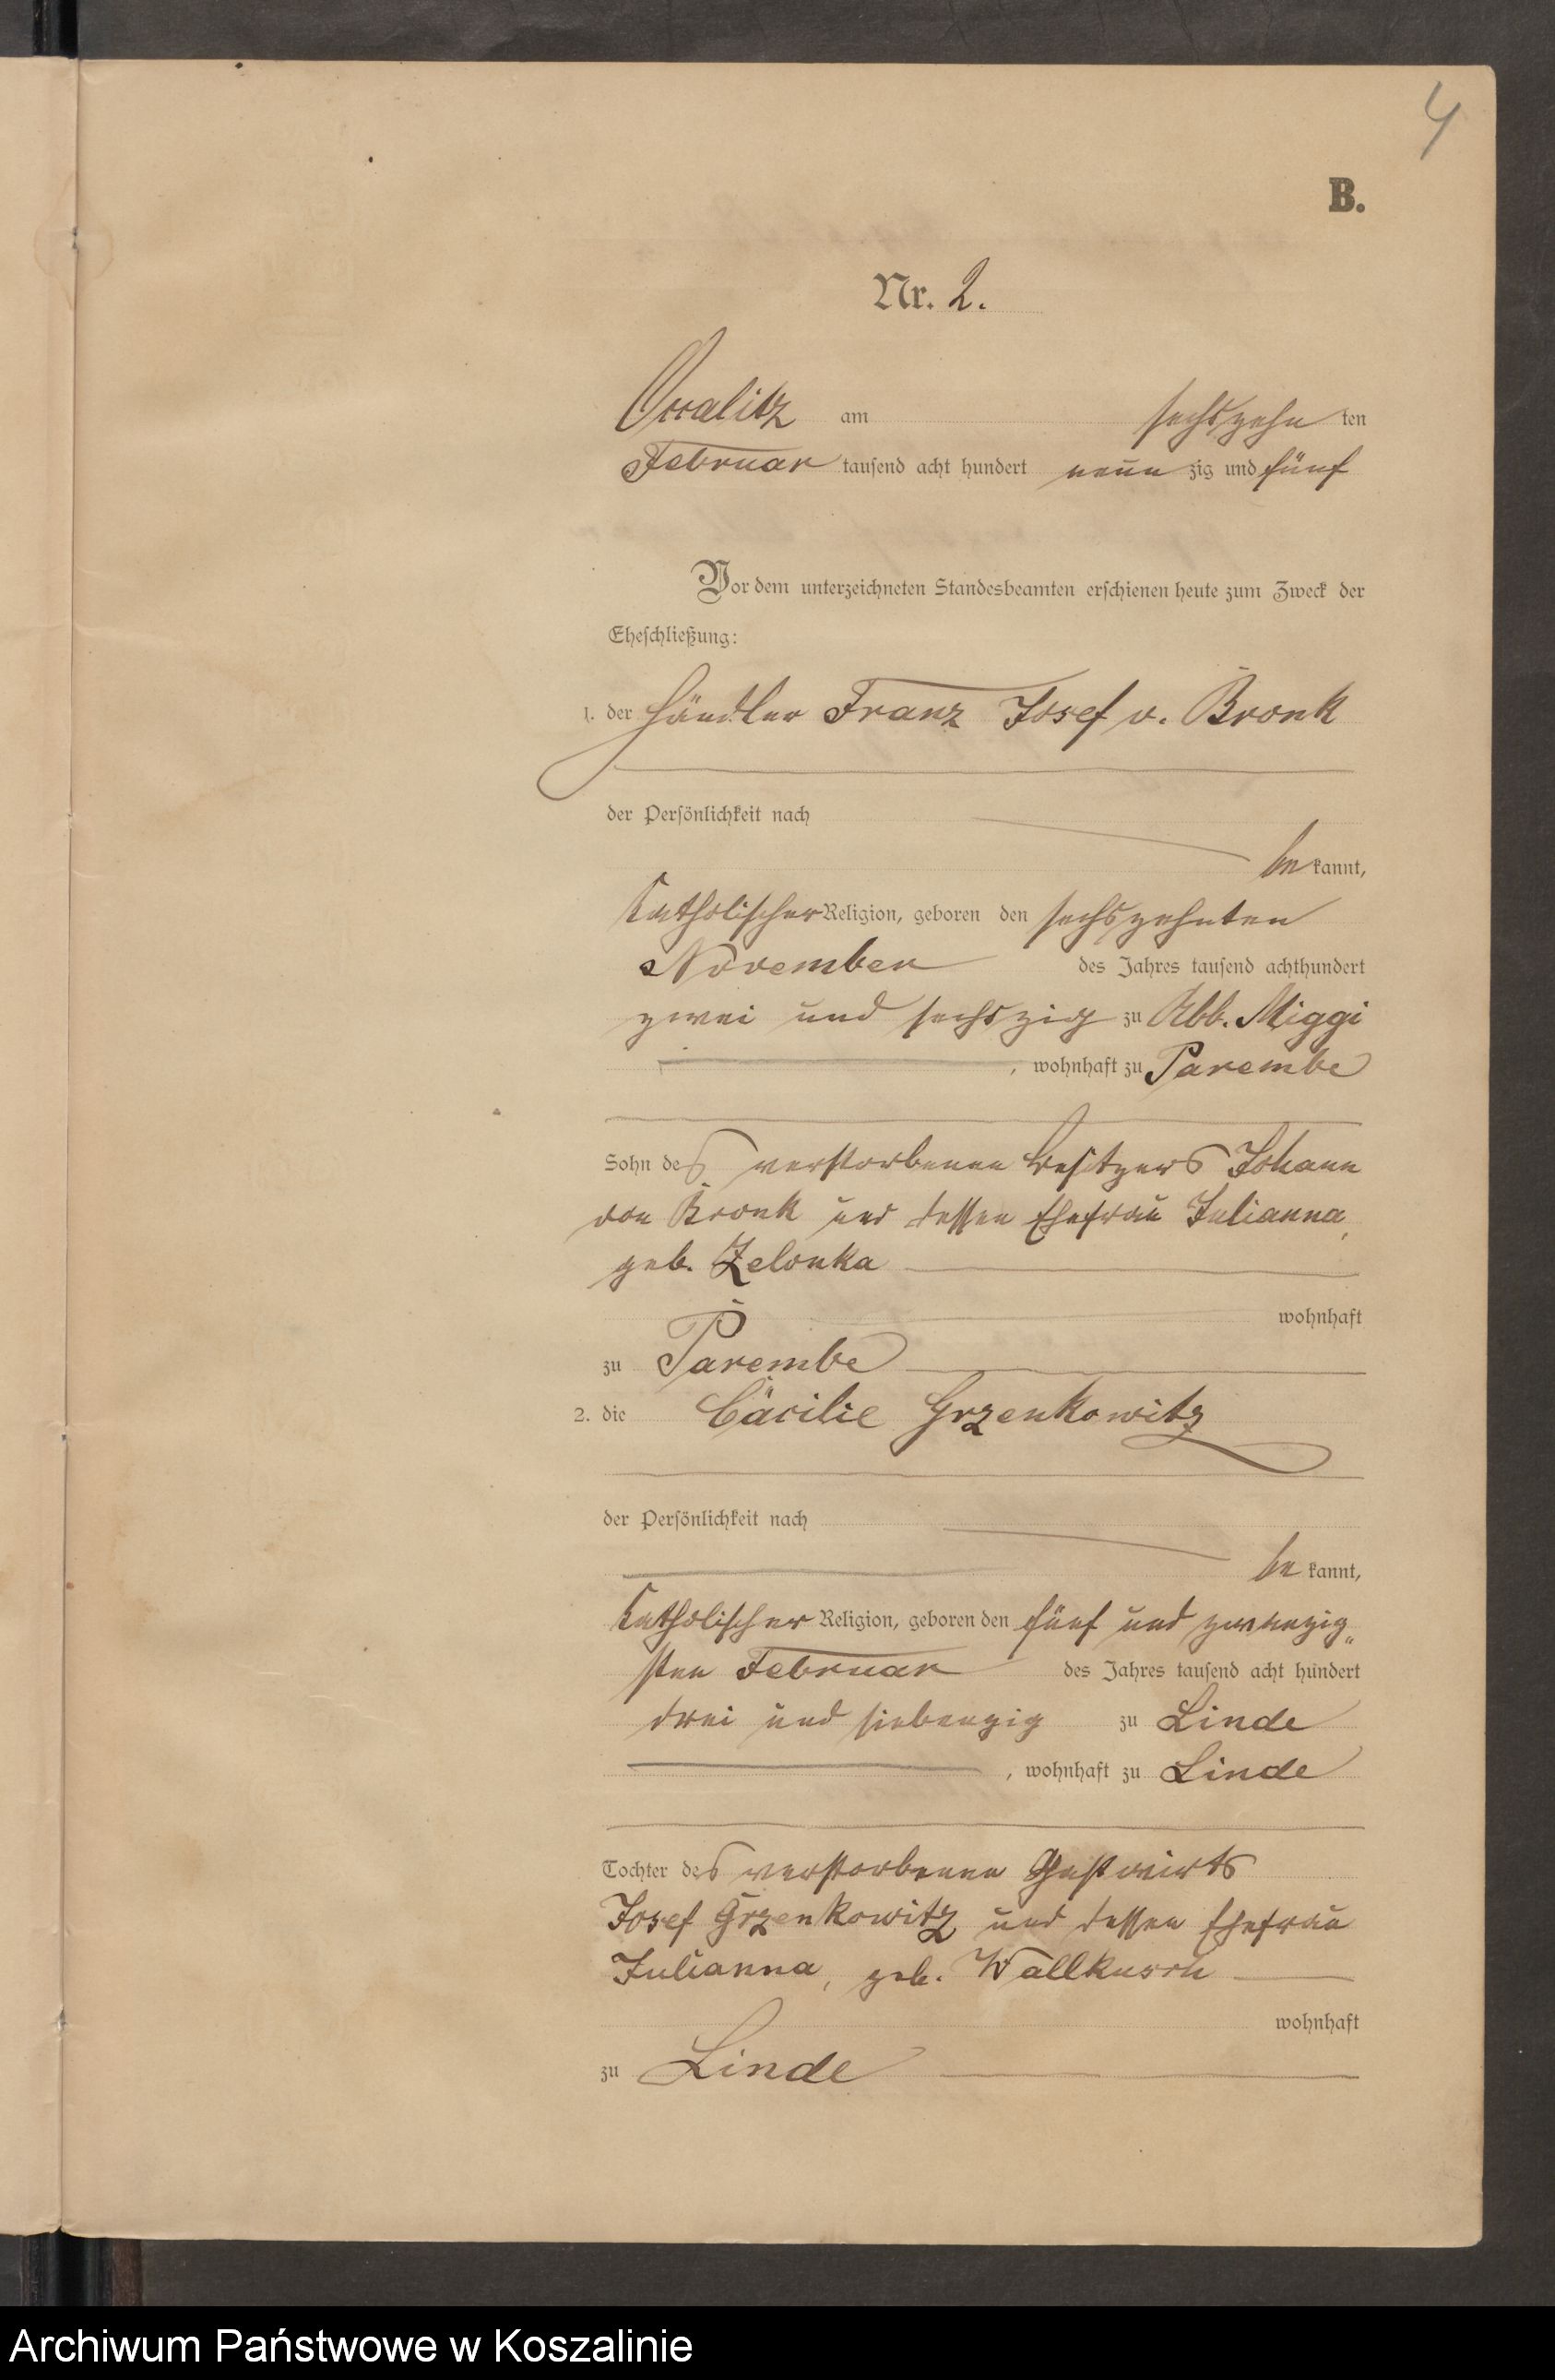 4
B.
Nr. 2.
Occalitz am sechszehn ten
Februar tausend acht hundert neun zig und fünf
Vor dem unterzeichneten Standesbeamten erschienen heute zum Zweck der
Eheschließung:
1. der Händler Franz Josef v. Bronk
der Persönlichkeit nach
be kannt,
katholischer Religion, geboren den sechszehnten
November des Jahres tausend achthundert
zwei und sechszig zu Abb. Miggi
, wohnhaft zu Parembe
Sohn des verstorbenen Besitzers Johann
von Bronk und dessen Ehefrau Julianna,
geb. Zelonka
wohnhaft
zu Parembe
2. die Cäcilie Grzenkowitz
der Persönlichkeit nach
be kannt,
katholischer Religion, geboren den fünf und zwanzig„
sten Februar des Jahres tausend acht hundert
drei und siebenzig zu Linde
, wohnhaft zu Linde
Tochter des verstorbenen Gastwirts
Josef Grzenkowitz und dessen Ehefrau
Julianna, geb. Wallkusch
wohnhaft
zu Linde
Archiwum Państwowe w Koszalinie